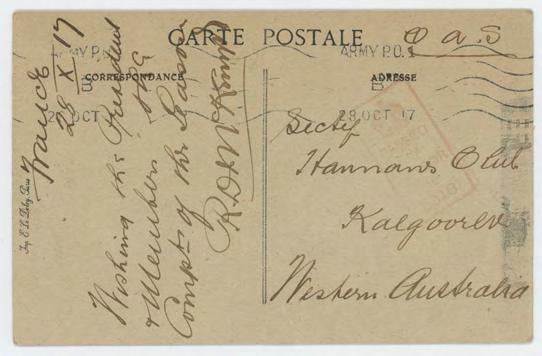 CARTE POSTALE
O a S
ARMY P.O. 1
ARMY P.O. 1
B
B
CORRESPONDANCE
ADRESSE
28 OCT 17
28 OCT
France
28 X 17
Wishing the President
& Members the
Compts of the Season
Secty
Hannans Club
Kalgoorlie
Western Australia